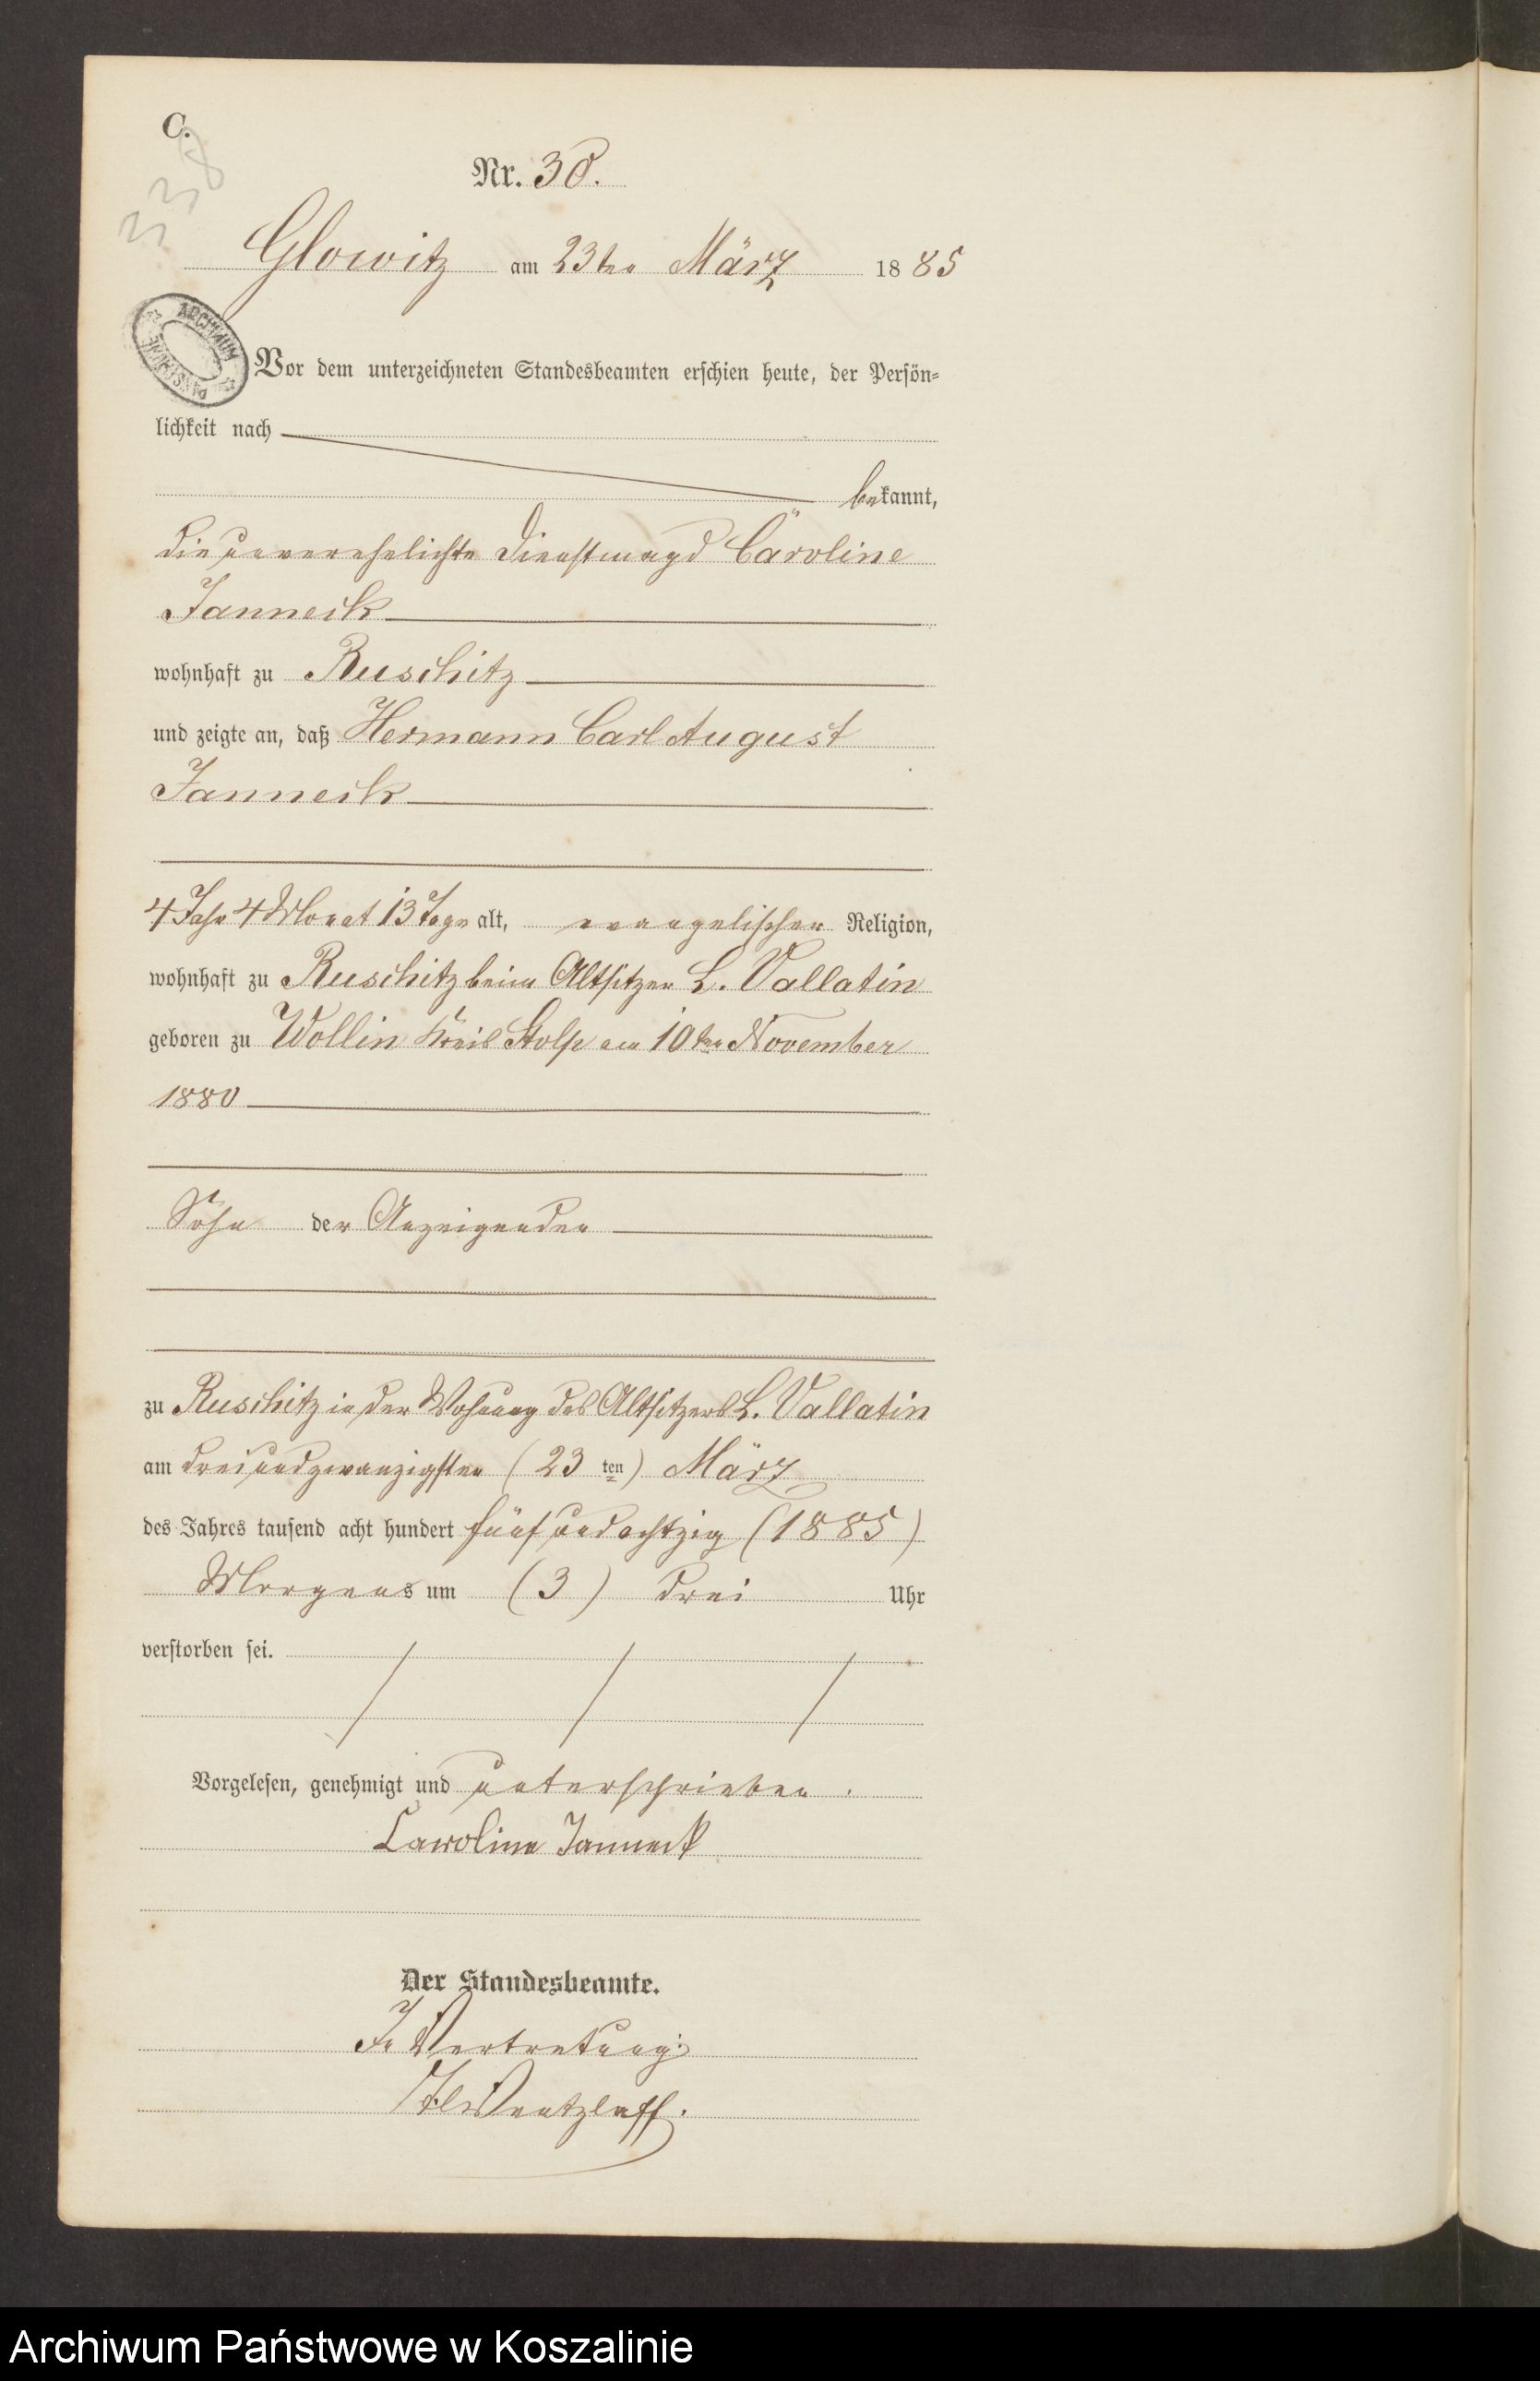 C.
338
Nr. 30.
Glowitz am 23ten März 1885
ARCHIWUM PAŃSTWOWE
Vor dem unterzeichneten Standesbeamten erschien heute, der Persön-
lichkeit nach
bekannt,
die unverehelichte Dienstmagd Caroline
Janneck
wohnhaft zu Ruschitz
und zeigte an, daß Hermann Carl August
Janneck
4 Jahr 4 Monat 13 Tage alt, evangelischer Religion,
wohnhaft zu Ruschitz beim Altsitzer L. Vallatin
geboren zu Wollin Kreis Stolp am 10ten November
1880
Sohn der Anzeigenden
zu Ruschitz in der Wohnung des Altsitzers L. Vallatin
am dreiundzwanzigsten (23 ten) März
des Jahres tausend acht hundert fünfundachtzig (1885)
Morgens um (3) drei Uhr
verstorben sei.
Vorgelesen, genehmigt und unterschrieben.
Caroline Janneck
Der Standesbeamte.
In Vertretung:
Wentzlaff.
Archiwum Państwowe w Koszalinie